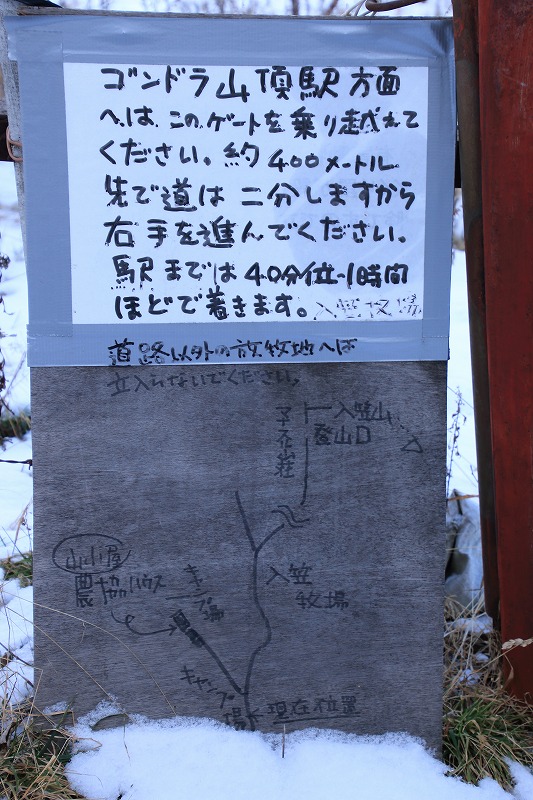 ゴンドラ山頂駅方面
へは、このゲートを乗り越えて
ください。約400メートル
先で道は二分しますから
右手を進んでください。
駅までは40分位~1時間
ほどで着きます。入笠牧場
道路以外の放牧地へは
立入らないでください。
入笠山
登山口
山小屋
農協ハウス
キャンプ場
入笠
牧場
キャンプ
場
現在位置